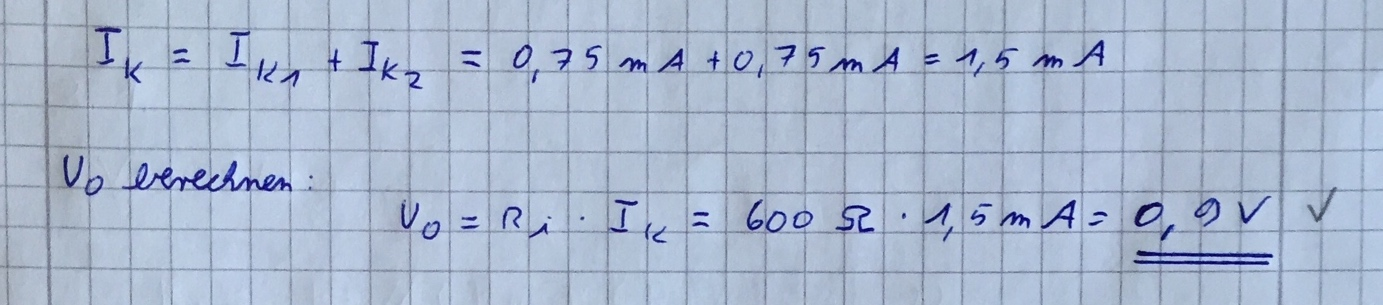 I_K = I_K1 + I_K2 = 0,75 mA + 0,75 mA = 1,5 mA
U_0 berechnen:
U_0 = R_i · I_K = 600 Ω · 1,5 mA = 0,9 V ✓